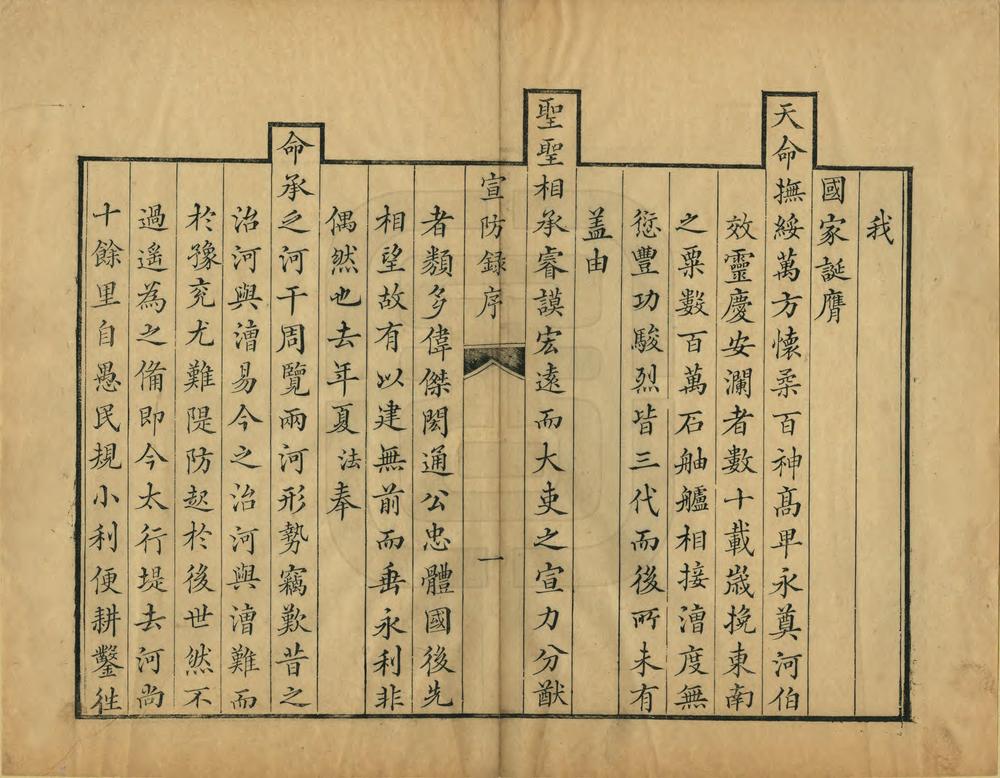 我
國家誕膺
天命撫綏萬方懷柔百神髙卑永奠河伯
效靈慶安瀾者數十載嵗挽東南
之粟數百萬石舳艫相接漕度無
愆豐功駿烈皆三代而後所未有
葢由
聖聖相承睿謨宏遠而大吏之宣力分猷
宣防録序
一
者類多偉傑閎通公忠體國後先
相望故有以建無前而垂永利非
偶然也去年夏法奉
命承之河干周覽兩河形勢竊歎昔之
治河與漕易今之治河與漕難而
於豫兖尤難隄防起於後世然不
過遥為之備即今太行堤去河尚
十餘里自愚民規小利便耕鑿徃